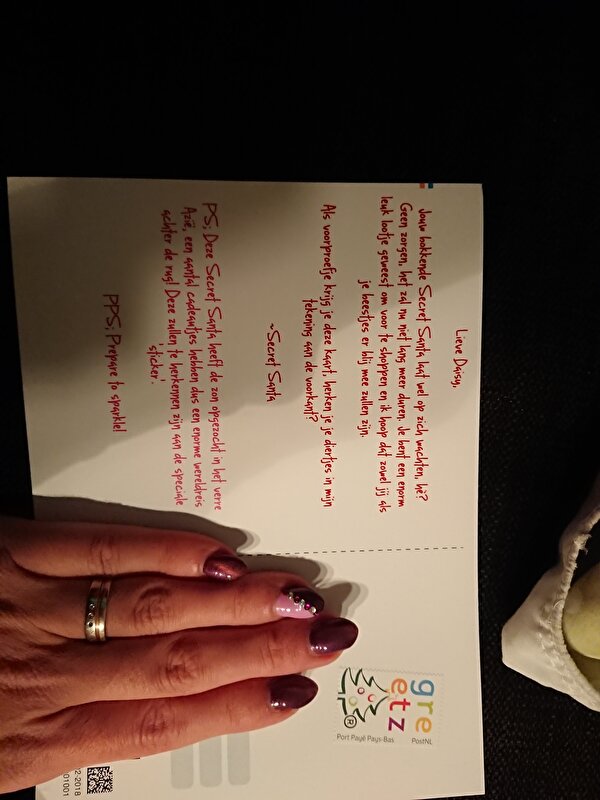 Lieve Daisy,
Jouw bokkende Secret Santa laat wel op zich wachten, hè?
Geen zorgen, het zal nu niet lang meer duren. Je bent een enorm
leuk lootje geweest om voor te shoppen en ik hoop dat zowel jij als
je beestjes er blij mee zullen zijn.
Als voorproefje krijg je deze kaart, herken je je diertjes in mijn
tekening aan de voorkant?
~Secret Santa
PS, Deze Secret Santa heeft de zon opgezocht in het verre
Azië, een aantal cadeautjes hebben dus een enorme wereldreis
achter de rug! Deze zullen te herkennen zijn aan de speciale
'sticker'.
PPS, Prepare to sparkle!
gre
etz
®
PostNL
Port Payé Pays-Bas
2-2018
01001